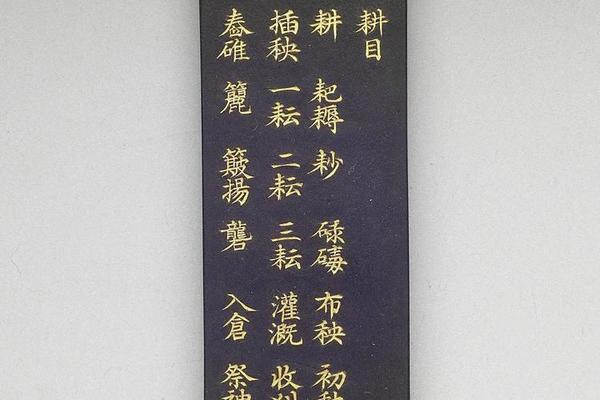 耕目
耕 耙耨 耖 碌碡 布秧 初秧
插秧 一耘 二耘 三耘 灌溉 收
舂碓 籭 簸揚 礱 入倉 祭神